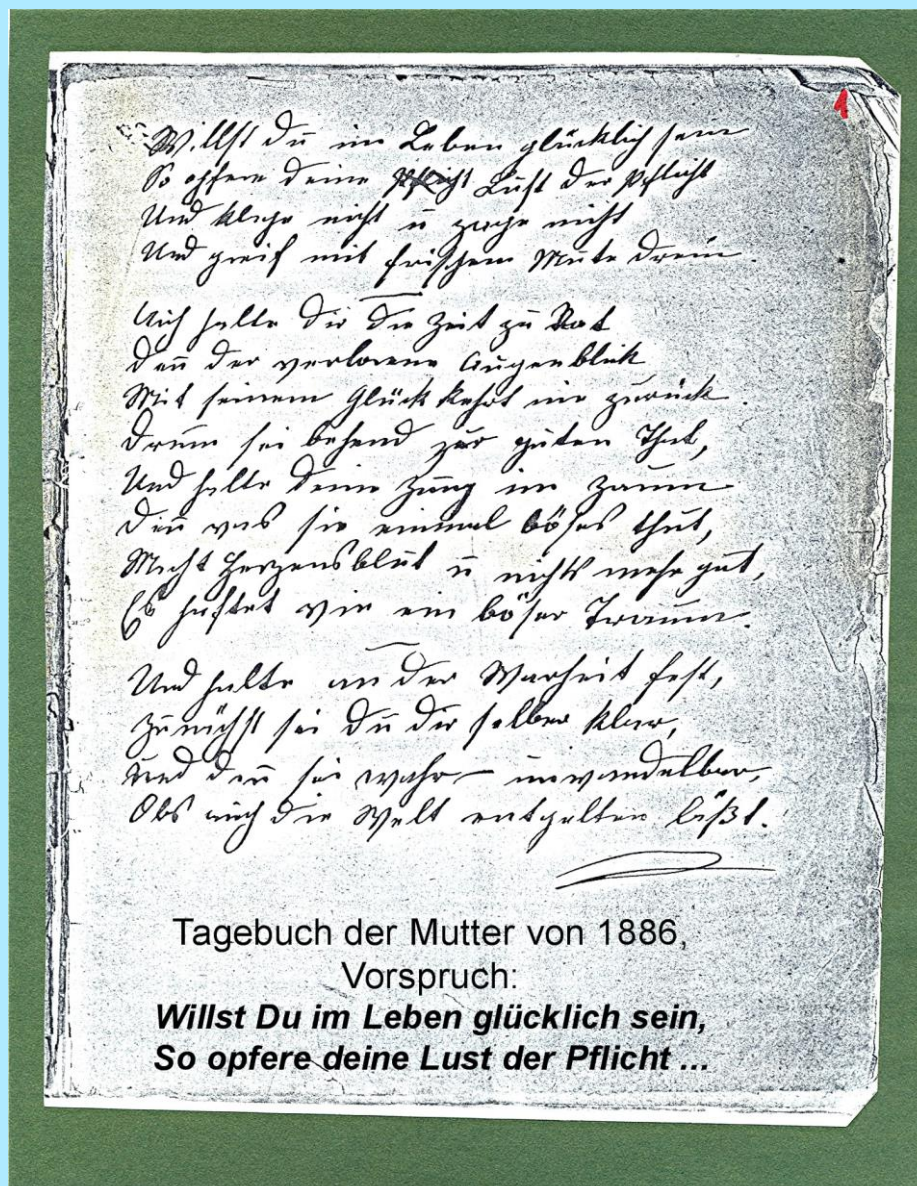 1
Willst du im Leben glücklich sein
So opfere deine Pflicht Lust der Pflicht
Und klage nicht u zage nicht
Und greif mit frischem Mute drein.
Auch halte dir die Zeit zu Rat
Den der verlorene Augenblick
Mit seinem Glück kehrt nie zurück.
Drum sei behend zur guten That,
Und halte deine Zung im Zaum
Den was sie einmal böses thut,
Macht Herzensblut u nichts mehr gut,
Es haftet wie ein böser Traum.
Und halte an der Warheit fest,
Zunächst sei du dir selber klar,
Und den sei wahr – unwandelbar,
Obs auch die Welt entgelten läßt.
Tagebuch der Mutter von 1886,
Vorspruch:
Willst Du im Leben glücklich sein,
So opfere deine Lust der Pflicht ...